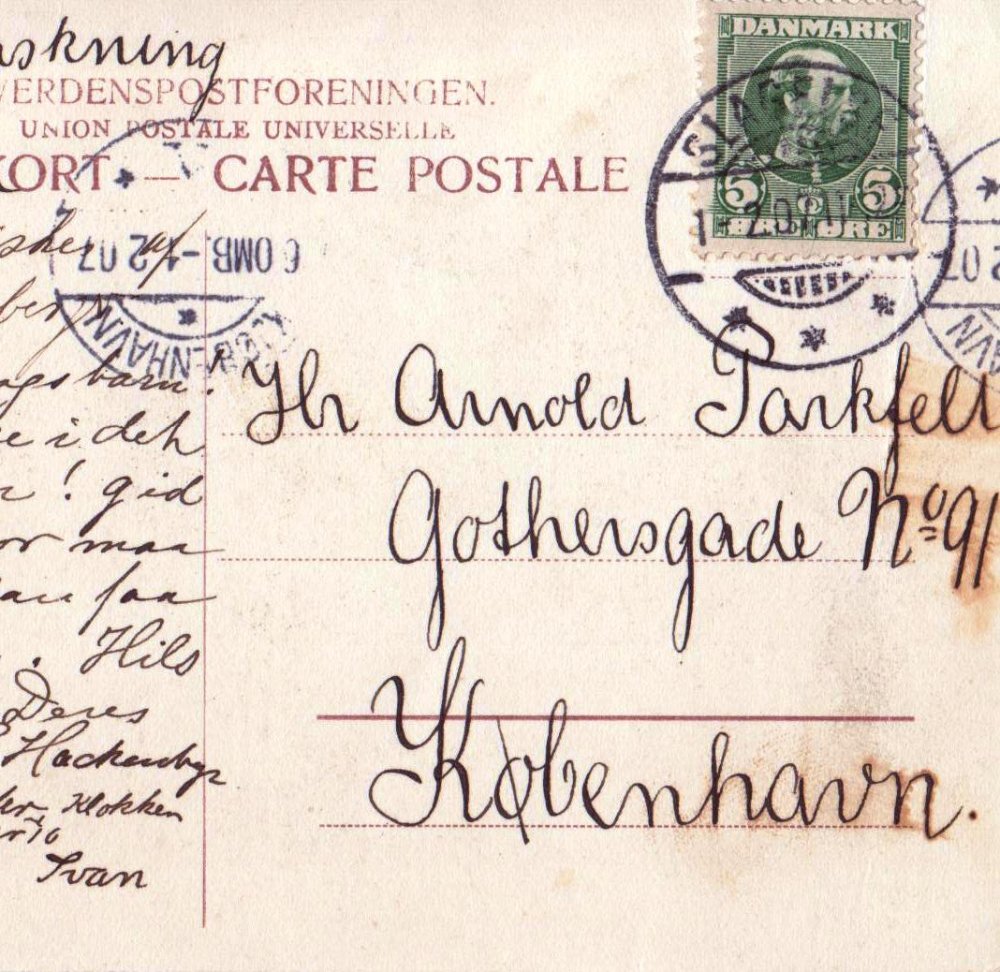 nskning
VERDENSPOSTFORENINGEN.
UNION POSTALE UNIVERSELLE
KORT — CARTE POSTALE
DANMARK
5 5
ØRE
1-2 07
6 OMB. -1 2 07
KJØBENHAVN
2 07
AVN
sker af
berg
ngsbarn!
e i det
r! gid
or maa
an faa
. Hils
Deres
Hackenby
ler Klokken
Svan
Hr Arnold Parkfelt
Gothersgade No 91
København.